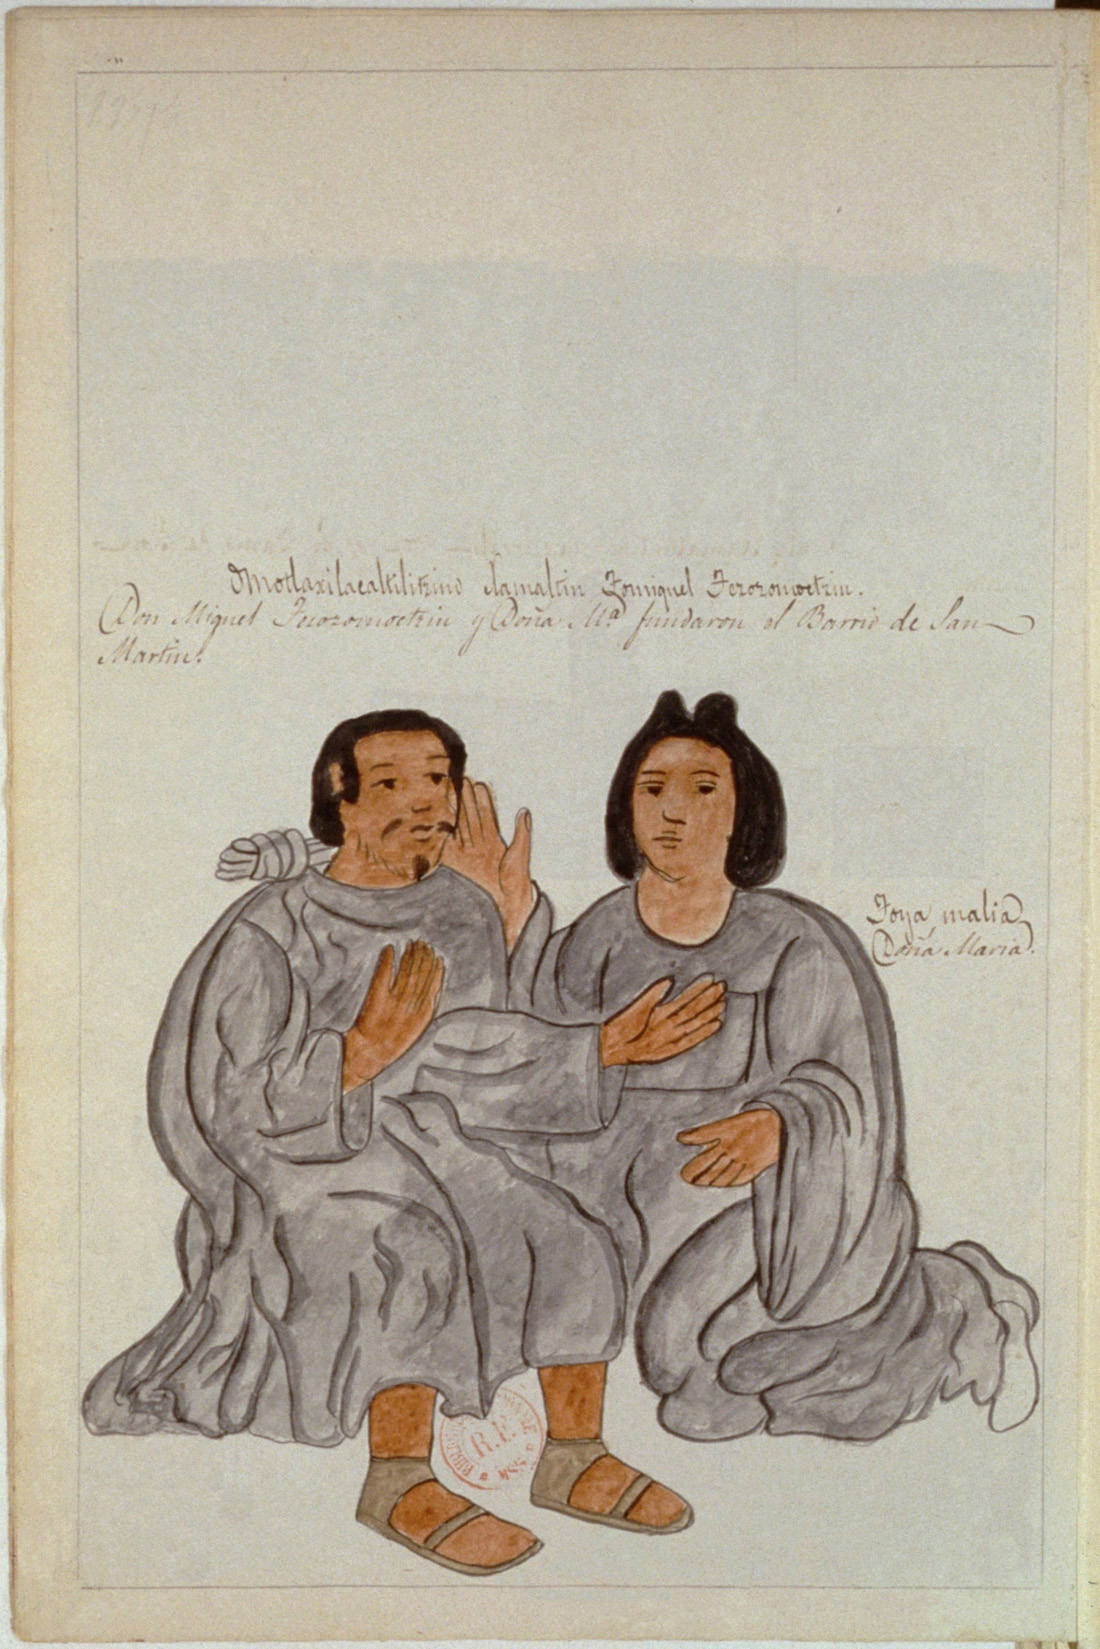 Omotlaxilacaltilitzino ilamaltin Tomiquel Tezozomoctzin.
Don Miguel Tezozomoctzin y Doña Mª fundaron el Barrio de San
Martin.
Toya malia
Doña Maria.
R.F.
MSS